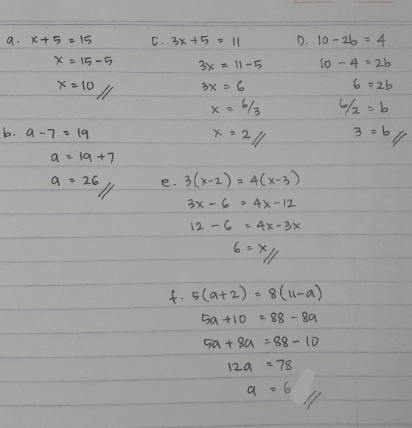 a. x+5 = 15
x = 15-5
x = 10
b. a-7 = 19
a = 19+7
a = 26
c. 3x+5 = 11
3x = 11-5
3x = 6
x = 6/3
x = 2
D. 10-2b = 4
10-4 = 2b
6 = 2b
6/2 = b
3 = b
e. 3(x-2) = 4(x-3)
3x - 6 = 4x-12
12 - 6 = 4x-3x
6 = x
f. 5(a+2) = 8(11-a)
5a+10 = 88-8a
5a+8a = 88-10
12a = 78
a = 6